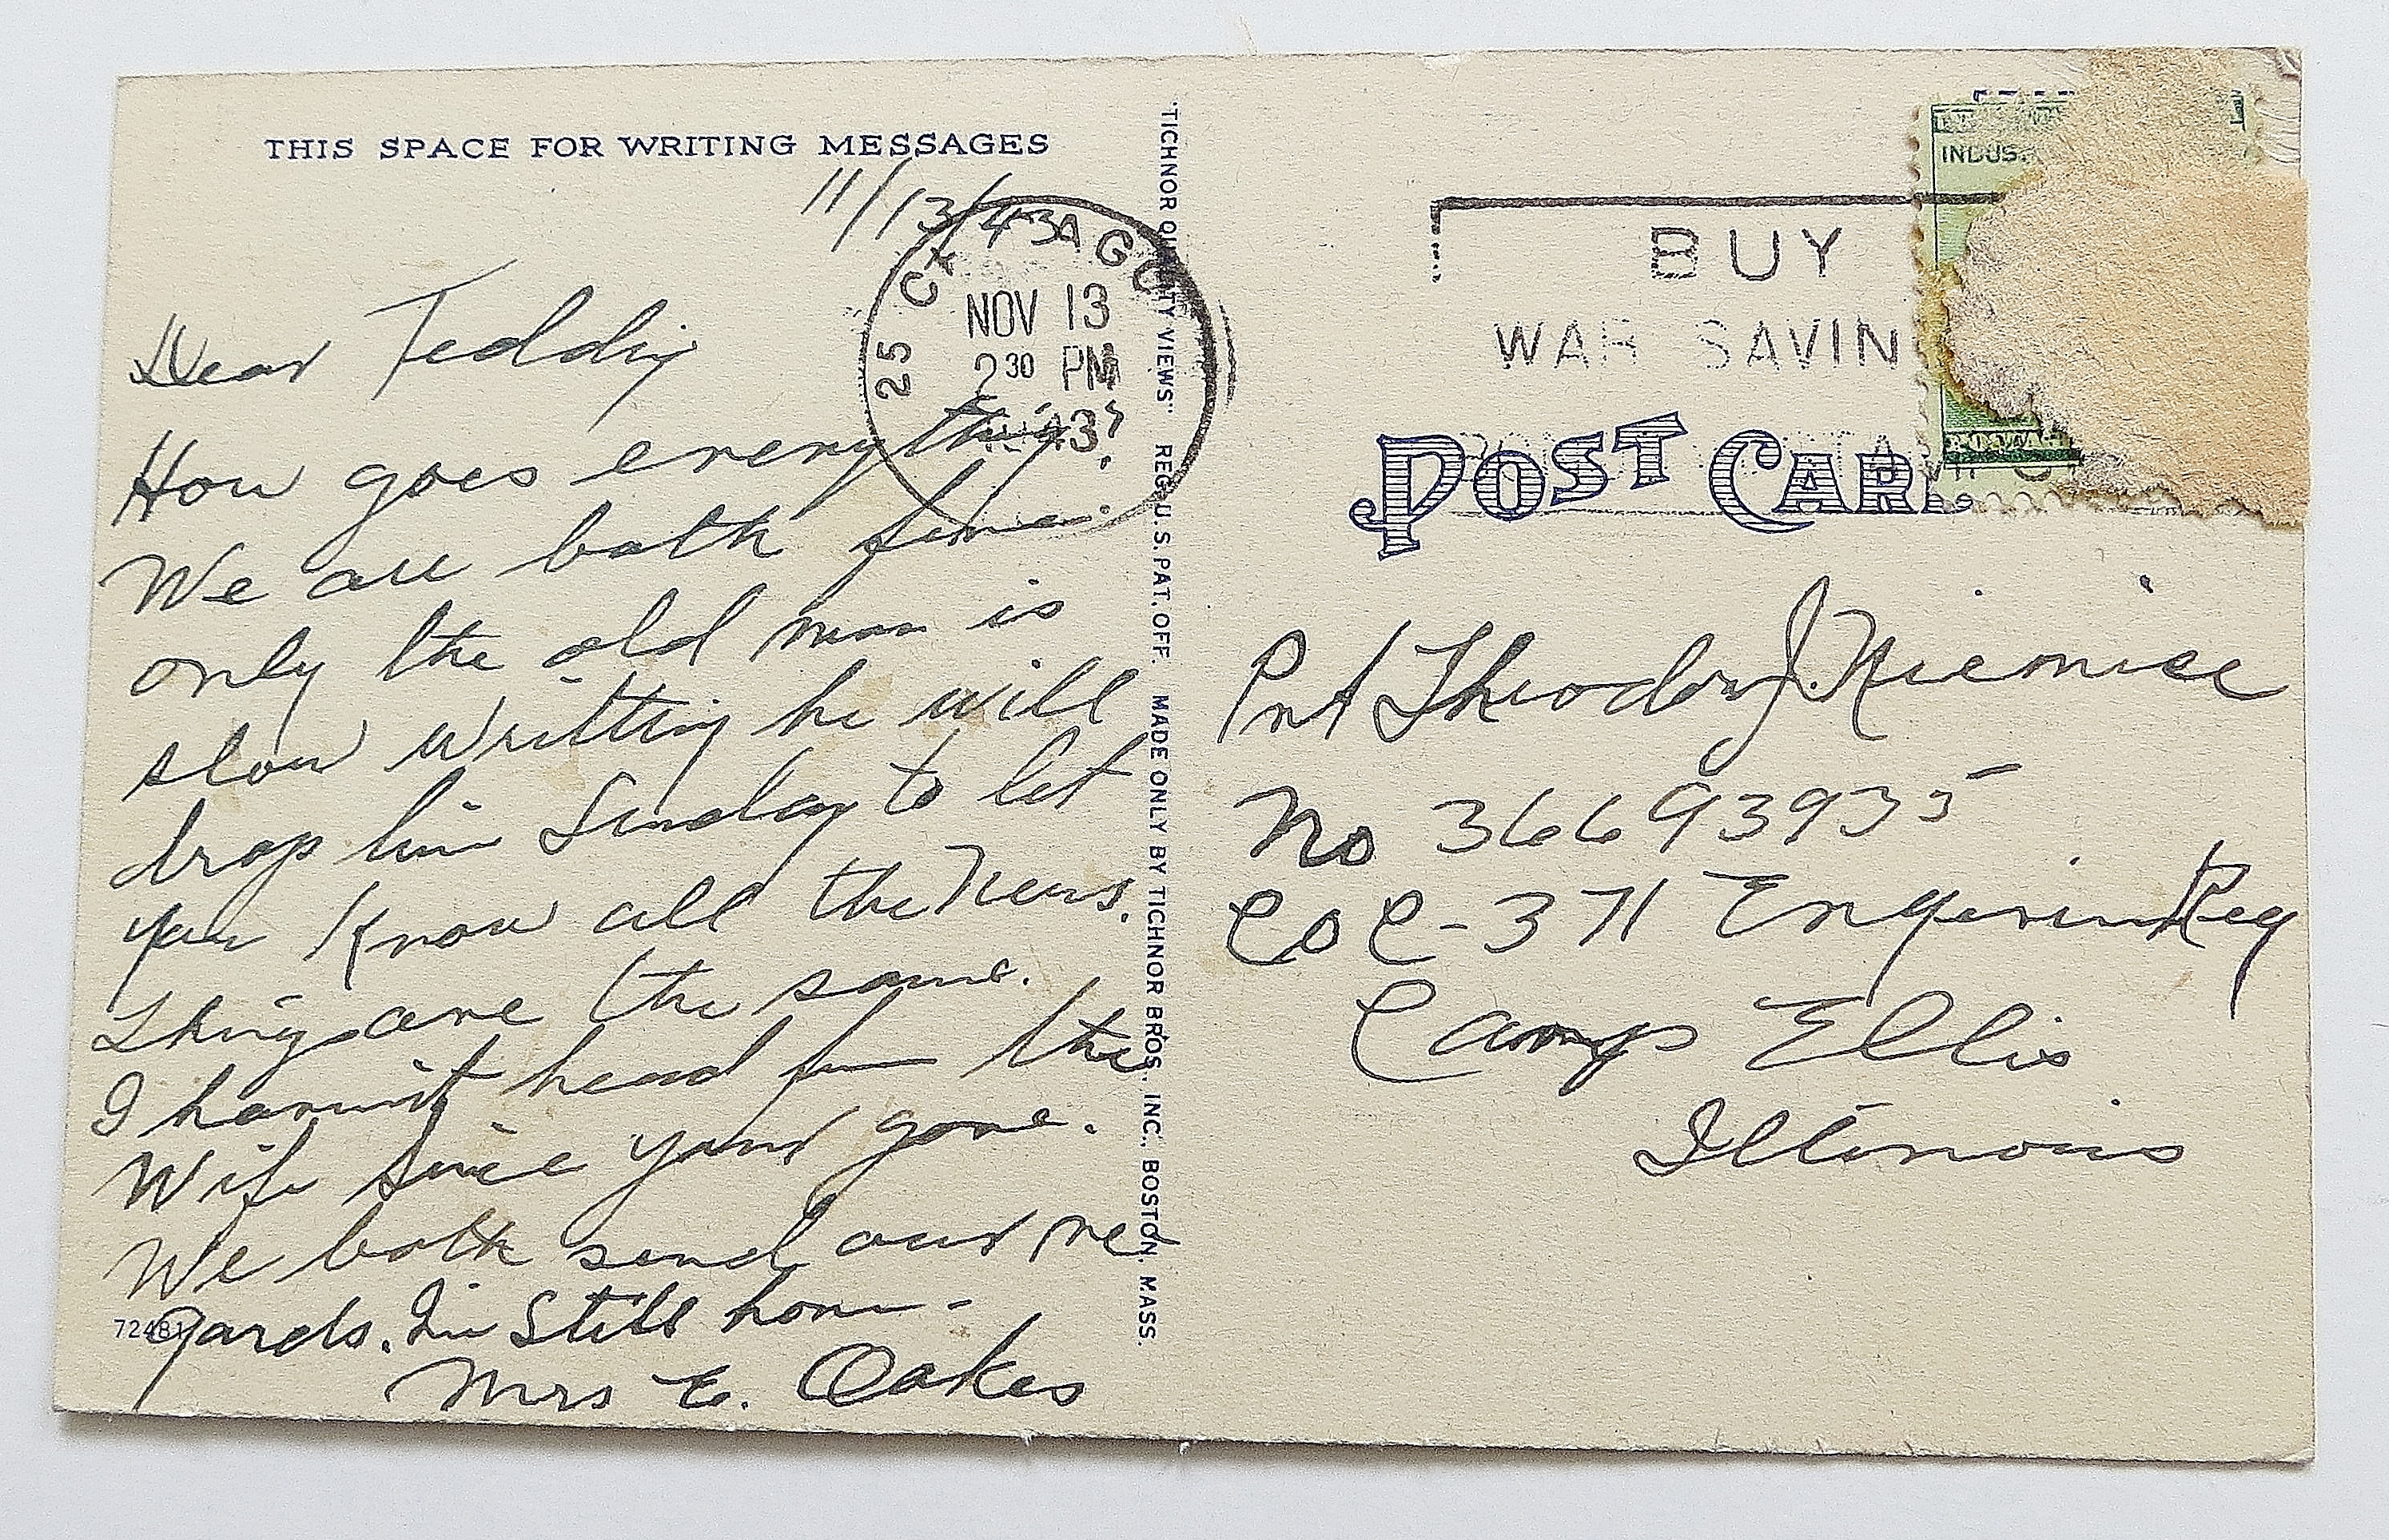 THIS SPACE FOR WRITING MESSAGES
11/13/43
25 CHICAGO
NOV 13
2 30 PM
43
Dear Teddy
How goes everything?
We are both fine.
only the old man is
slow writting he will
drop line Sunday to let
you know all the news.
Things are the same.
I havent heard from the
Wife since your gone.
We both send our re
gards. Im Still home-
Mrs E. Oakes
72481
"TICHNOR QUALITY VIEWS" REG. U. S. PAT. OFF. MADE ONLY BY TICHNOR BROS., INC., BOSTON, MASS.
INDUS
BUY
WAR SAVIN
POST CAR
POSTAG
Pvt Theodore J. Niemiec
No 36693935
Co C-371 Reg
Camp Ellis
Illinois